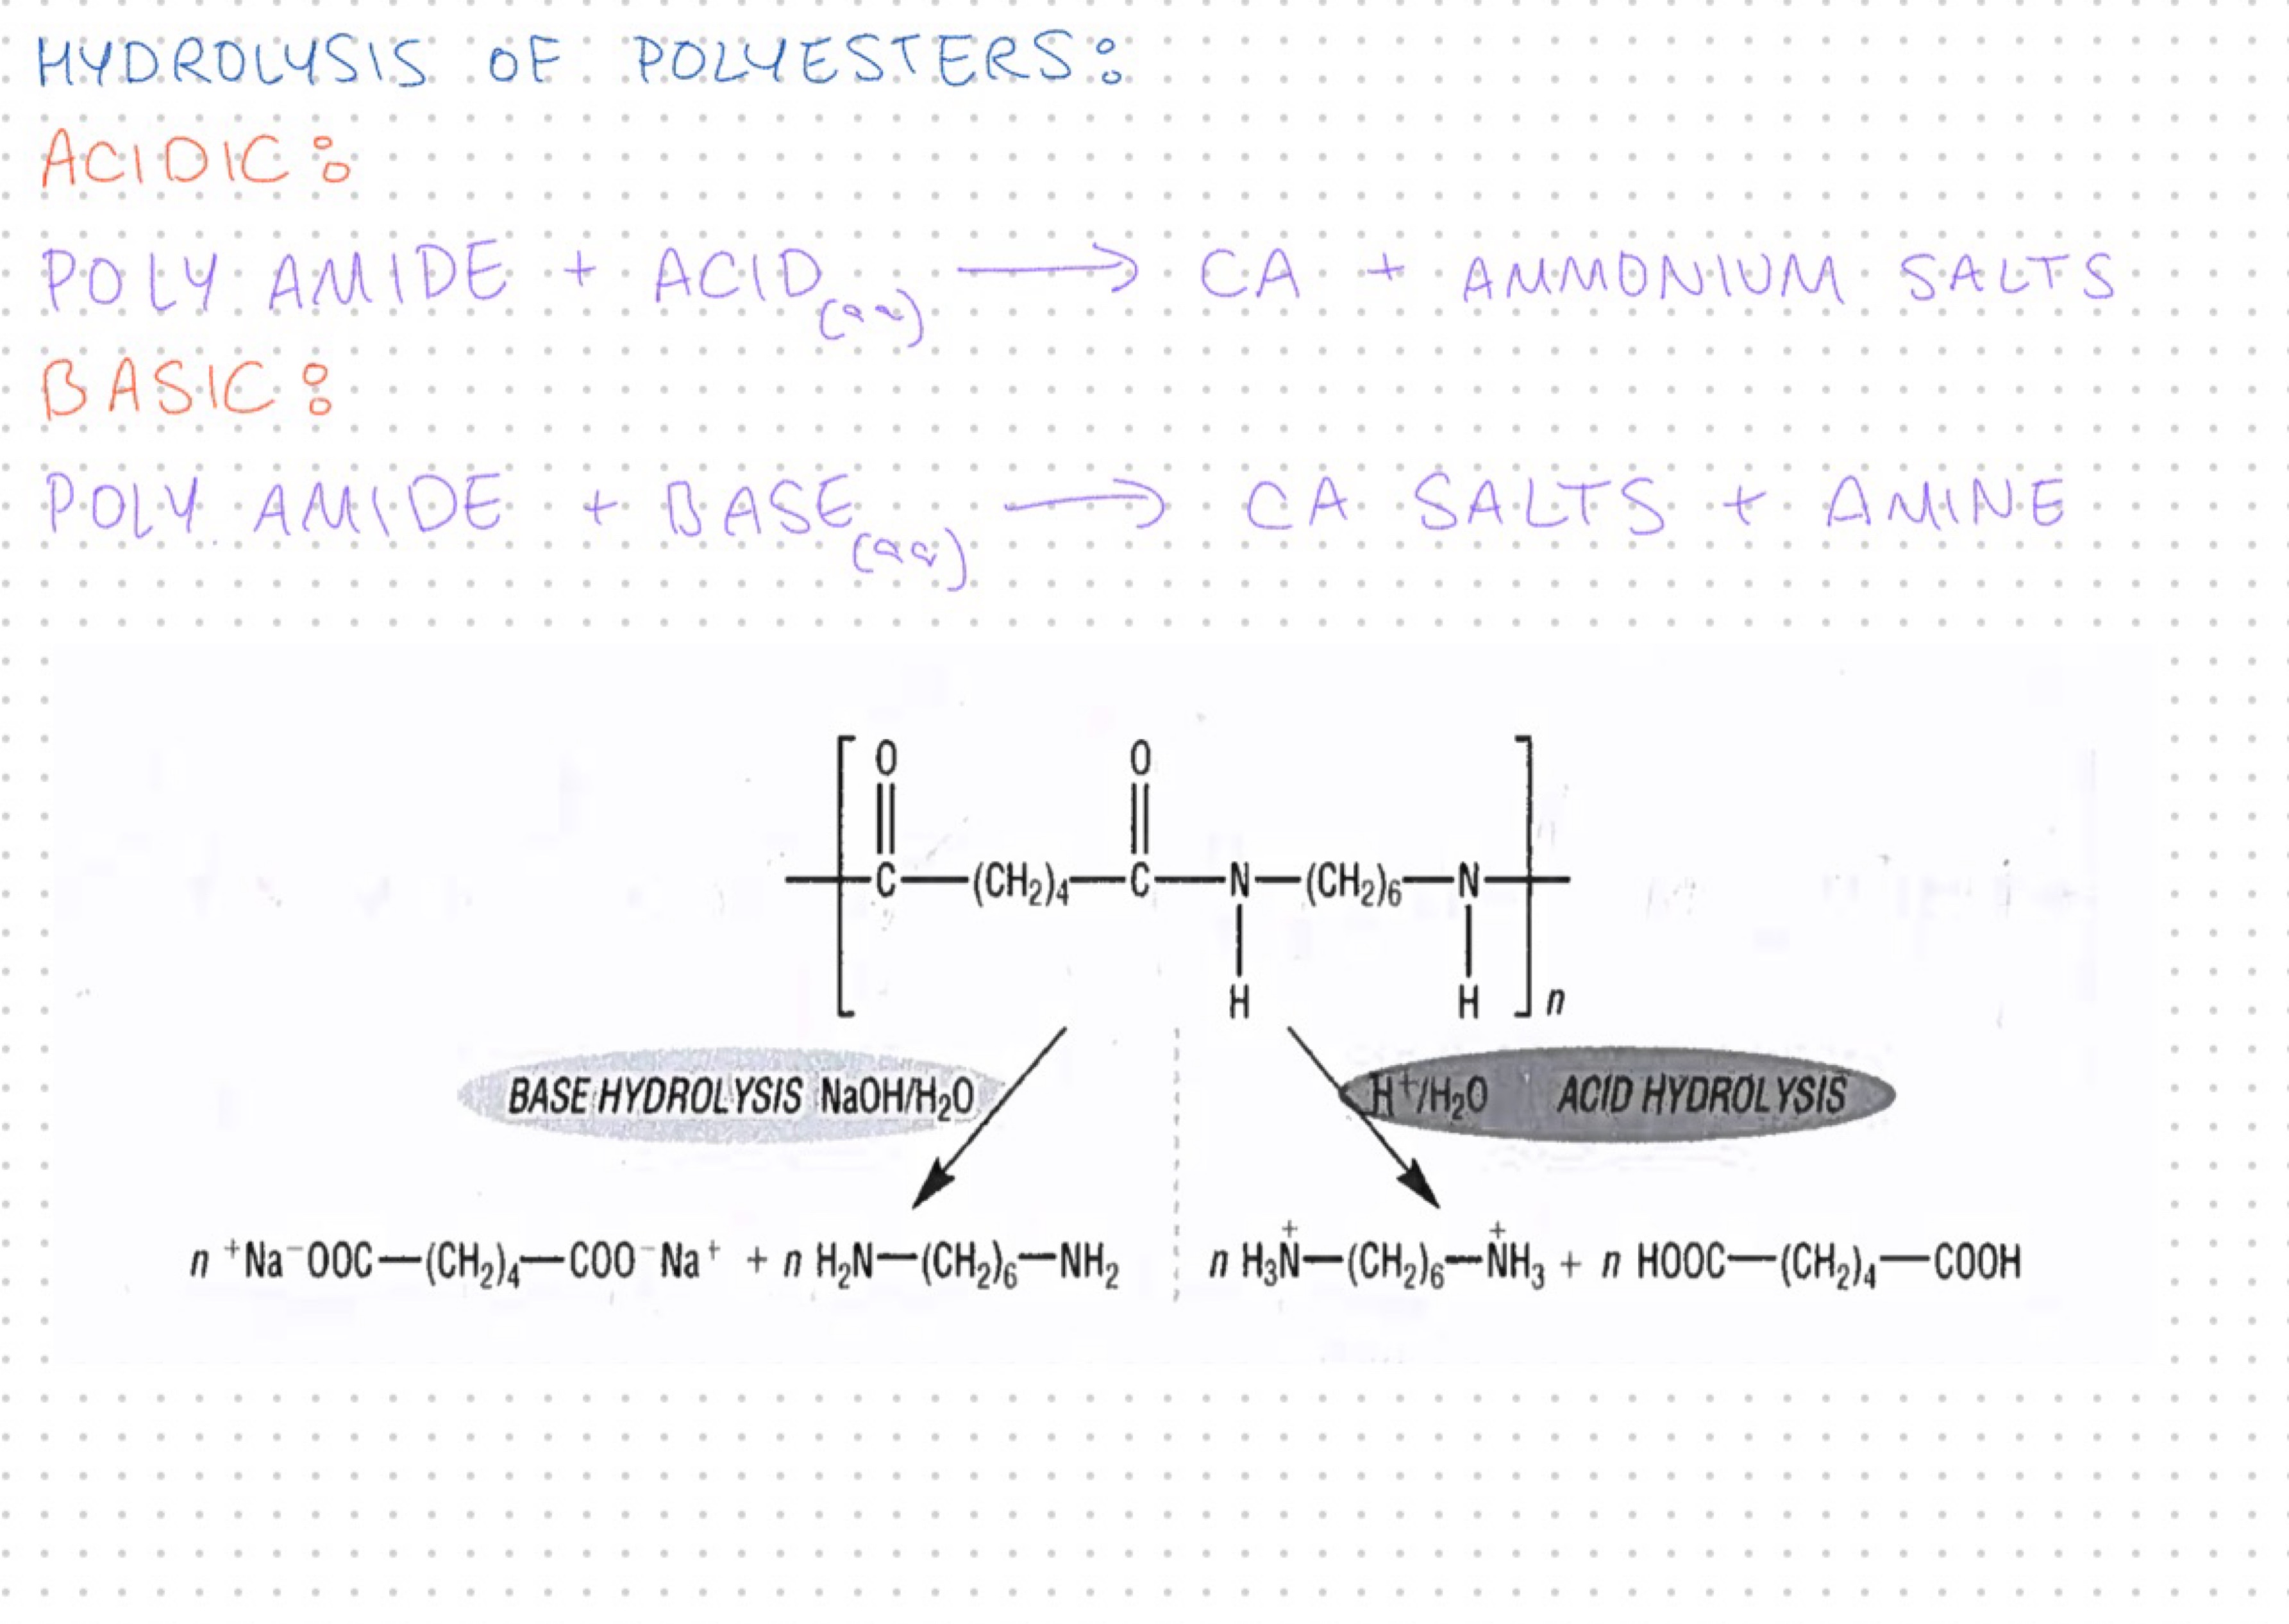 HYDROLYSIS OF POLYESTERS:
ACIDIC:
POLY AMIDE + ACID(aq) ⟶ CA + AMMONIUM SALTS
BASIC:
POLY AMIDE + BASE(aq) ⟶ CA SALTS + AMINE
O O
C—(CH₂)₄—C—N—(CH₂)₆—N
H H n
BASE HYDROLYSIS NaOH/H₂O H⁺/H₂O ACID HYDROLYSIS
n ⁺Na⁻OOC—(CH₂)₄—COO⁻Na⁺ + n H₂N—(CH₂)₆—NH₂ n H₃N⁺—(CH₂)₆—N⁺H₃ + n HOOC—(CH₂)₄—COOH